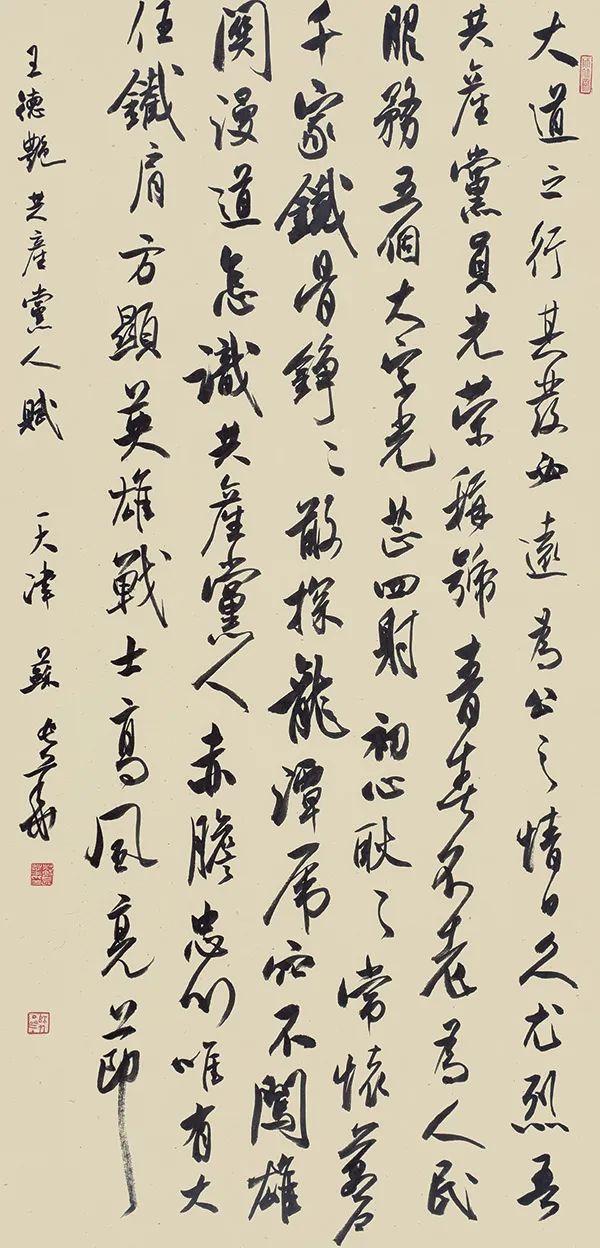 大道之行其發必遠為公之情日久尤烈吾
共產黨員光榮稱號青春不老為人民
服務五個大字光芒四射初心耿々常懷萬户
千家鐵骨錚々敢探龍潭虎穴不闖雄
關漫道怎識共產黨人赤膽忠心唯有大
任鐵肩方顯英雄戰士高風亮節
王德艷共產黨人賦 天津 蘇